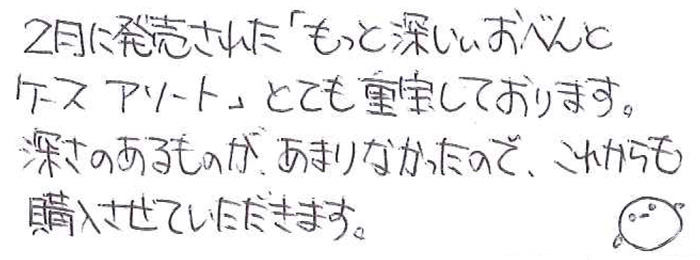 2月に発売された「もっと深いぃおべんと
ケース アソート」とても重宝しております。
深さのあるものが、あまりなかったので、これからも
購入させていただきます。